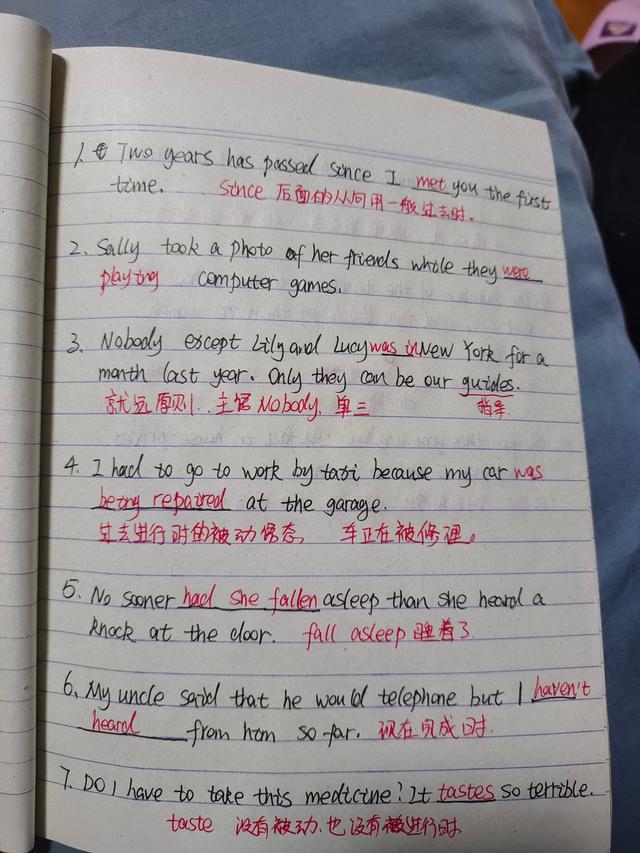 1. Two years has passed since I met you the first
time. since 后面的从句用一般过去时.
2. Sally took a photo of her friends while they were
playing computer games.
3. Nobody except Lily and Lucy was in New York for a
month last year. Only they can be our guides.
就远原则. 主语 Nobody, 单三
4. I had to go to work by taxi because my car was
being repaired at the garage.
过去进行时的被动语态, 车正在被修理。
5. No sooner had she fallen asleep than she heard a
knock at the door. fall asleep 睡着了
6. My uncle said that he would telephone but I haven't
heard from him so far. 现在完成时.
7. Do I have to take this medicine? It tastes so terrible.
taste 没有被动. 也没有进行时